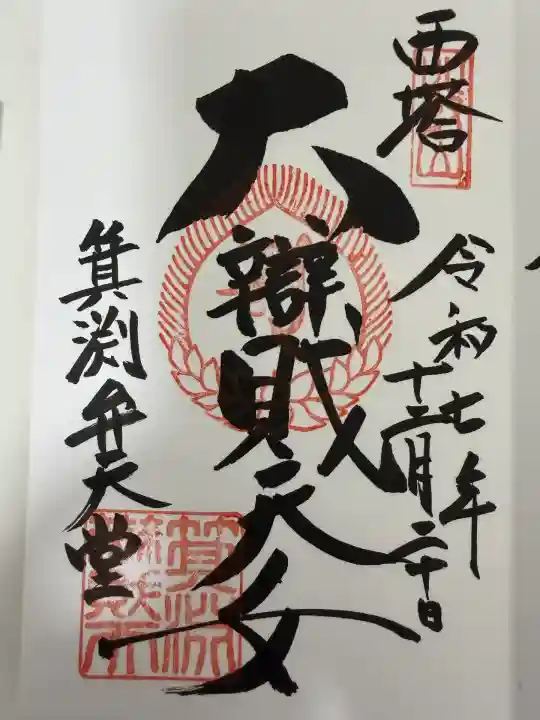 西塔
令和七年
十二月二十日
大辯財天女
箕淵弁天堂